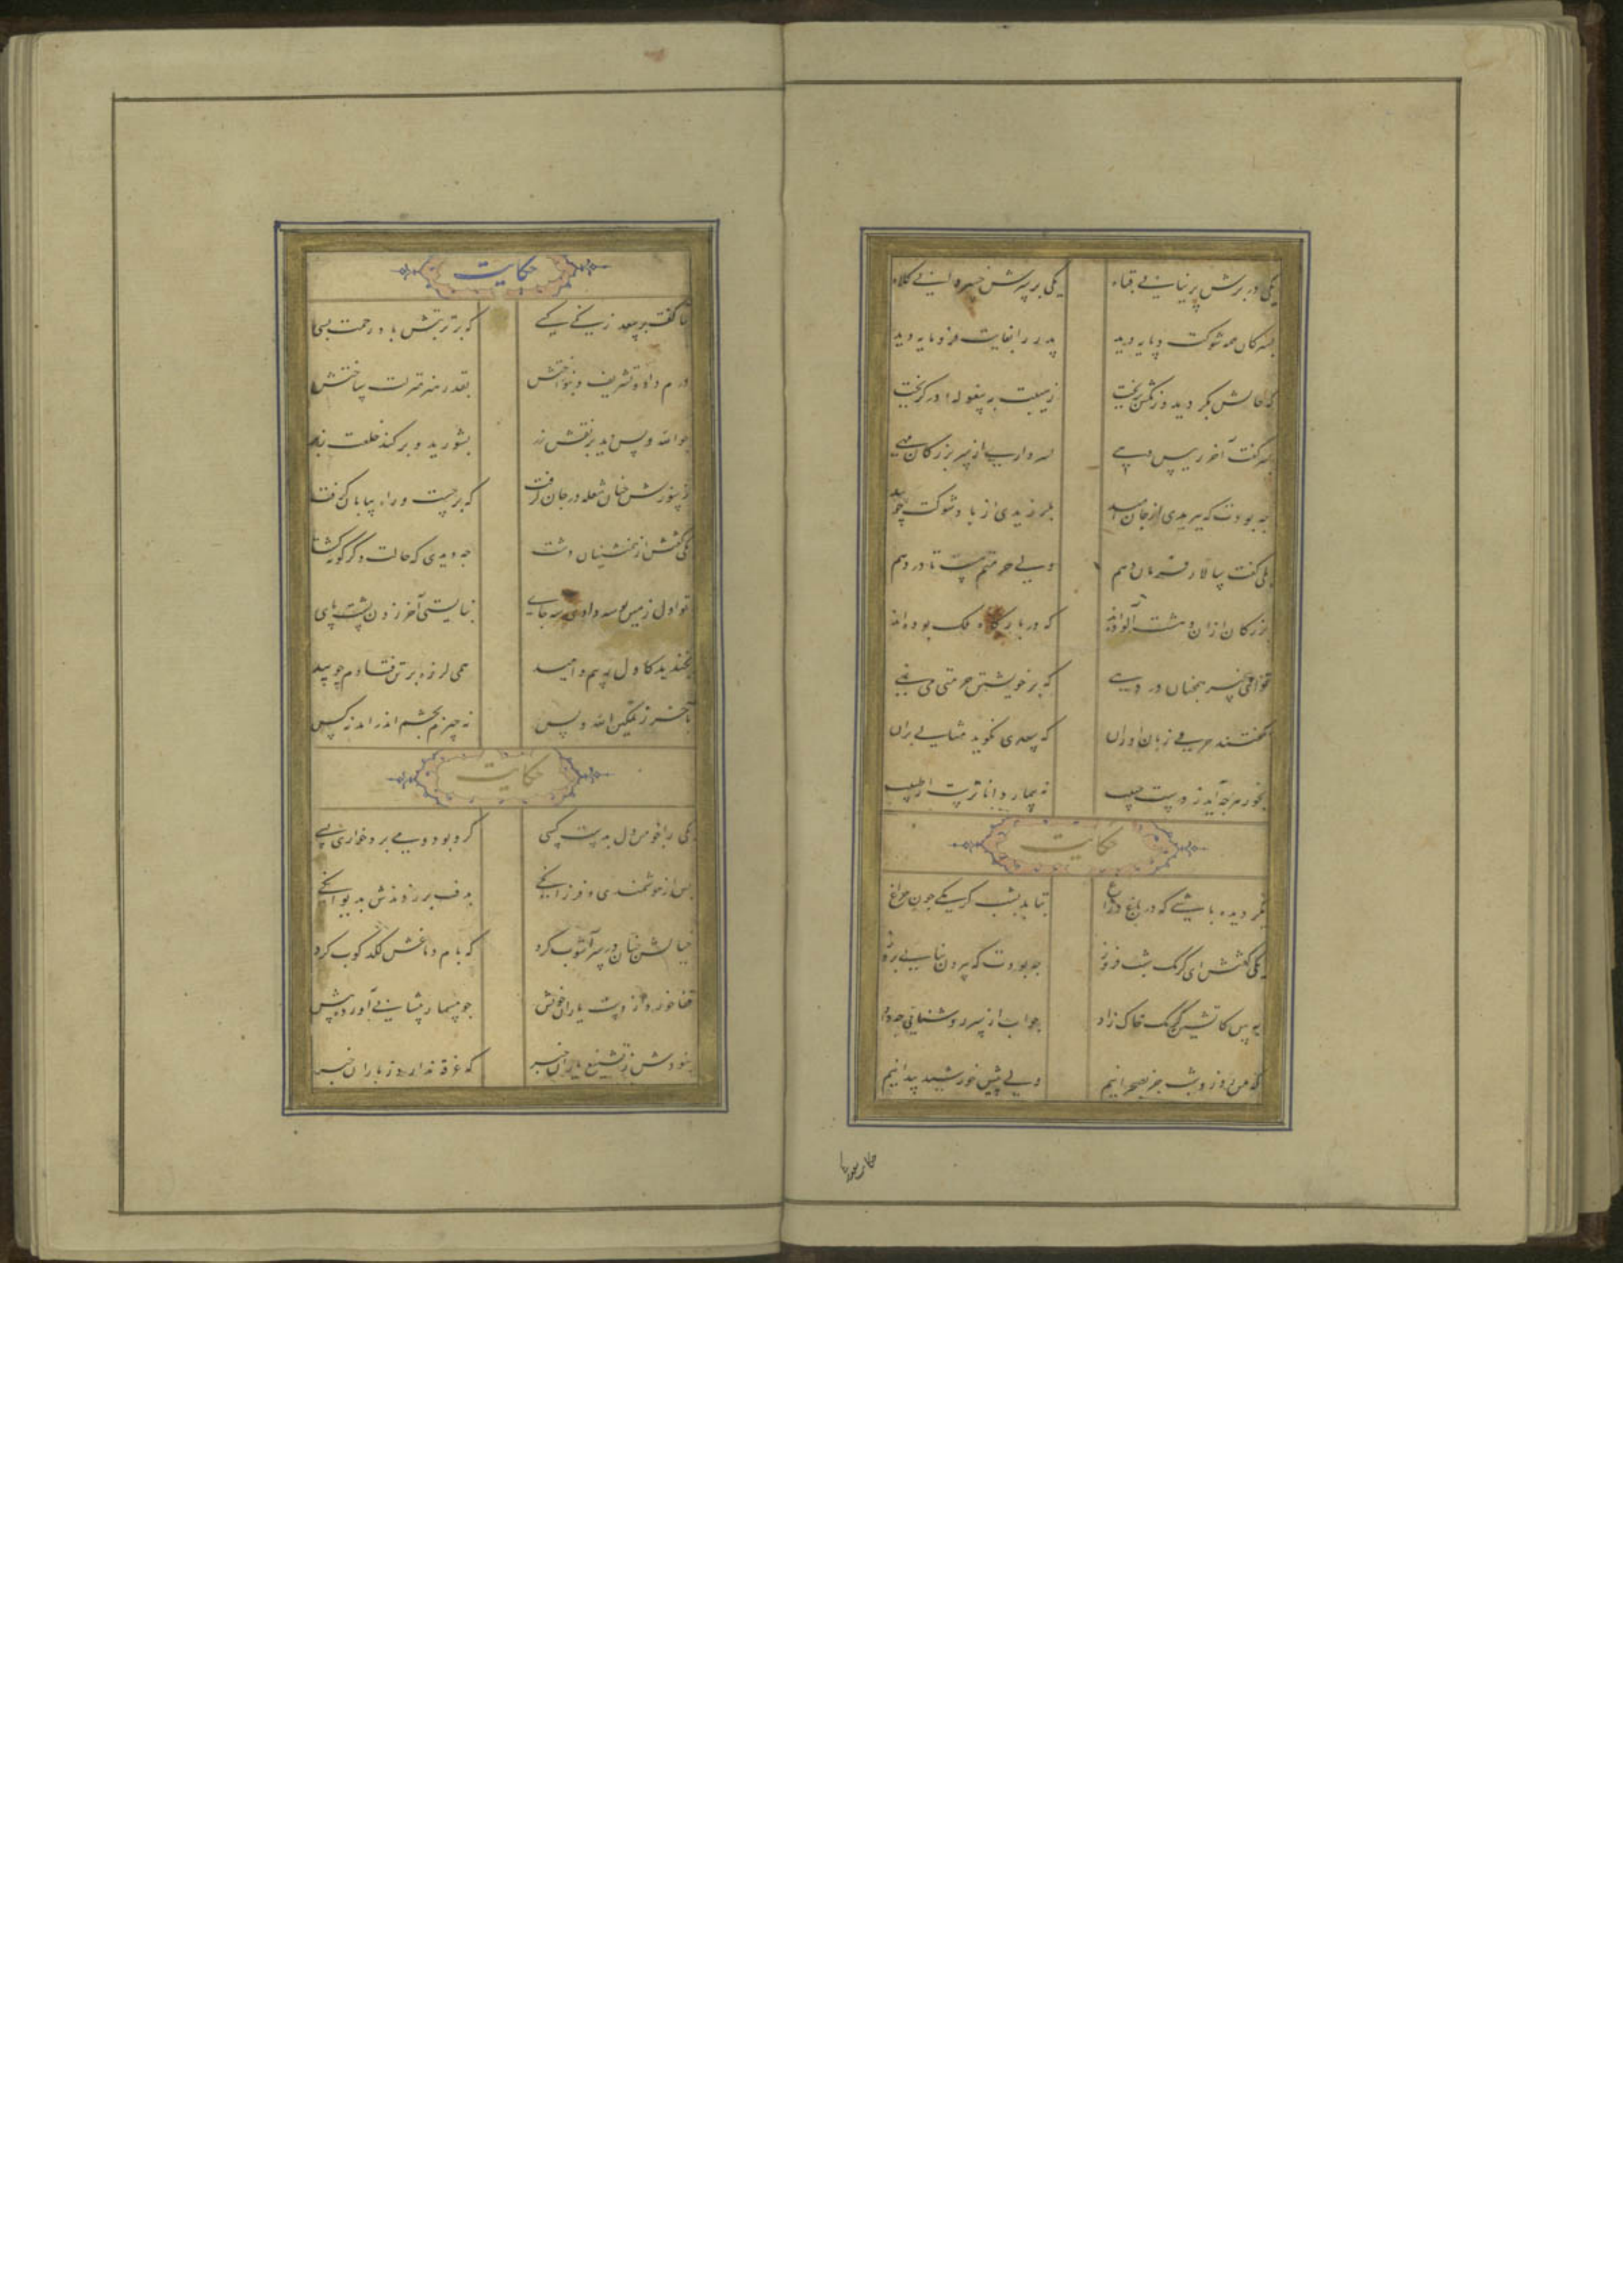 یکی در برش پرنیانی قباء یکی بر سرش خسروانی کلاه
پسر کان همه شوکت و پایه دید پدر را بغایت فرومایه دید
که حالش بگردید و رنگش بریخت ز هیبت به پیغوله‌ای در گریخت
پسر گفت آخر رییس دهی بسرداری از سر بزرگان مهی
چه بودت که ببریدی از جان امید بلرزیدی از باد شوکت چو بید
بلی گفت سالار و فرمان دهم ولی حرمتم هست تا در دهم
بزرگان از آن دهشت آلوده‌اند که در بارگاه ملک بوده‌اند
تو ای بی‌خبر همچنان در دهی که بر خویشتن حرمتی می نهی
نگفتند حرفی زبان آوران که سعدی نگوید مثالی بر آن
بخور هرچه آید ز دست حبیب نه بیمار داناترست از طبیب
حکایت
مگر دیده باشی که در باغ و راغ بتابد بشب کرمکی چون چراغ
یکی گفتش ای کرمک شب فروز چه بودت که بیرون نیایی بروز
ببین کاتشین کرمک خاک زاد جواب از سر روشنایی چه داد
که من روز و شب جز بصحرا نیم ولی پیش خورشید پیدا نیم
حکایت
ثنا گفت بر سعد زنگی کسی که بر تربتش باد رحمت بسی
درم داد و تشریف و بنواختش بقدر هنر منزلت ساختش
چو الله و بس دید بر نقش زر بشورید و برکند خلعت ز بر
ز سوزش چنان شعله در جان گرفت که برجست و راه بیابان گرفت
یکی گفتش از همنشینان دشت چه دیدی که حالت دگرگونه گشت
تو اول زمین بوسه دادی سه جای نبایستی آخر زدن پشت پای
بخندید کاول ز بیم و امید همی لرزه بر تن فتادم چو بید
بآخر ز تمکین الله و بس نه چیزم بچشم اندر آمد نه کس
حکایت
یکی را چو من دل بدست کسی گرو بود و می برد خواری بسی
پس از هوشمندی و فرزانگی بدف بر زدندش بدیوانگی
خیالش چنان در سر آشوب کرد که بام دماغش لگدکوب کرد
قفا خوردی از دست یاران خویش چو مسمار پیشانی آورده پیش
نبودش ز تشنیع یاران خبر که غرقه ندارد ز باران خبر